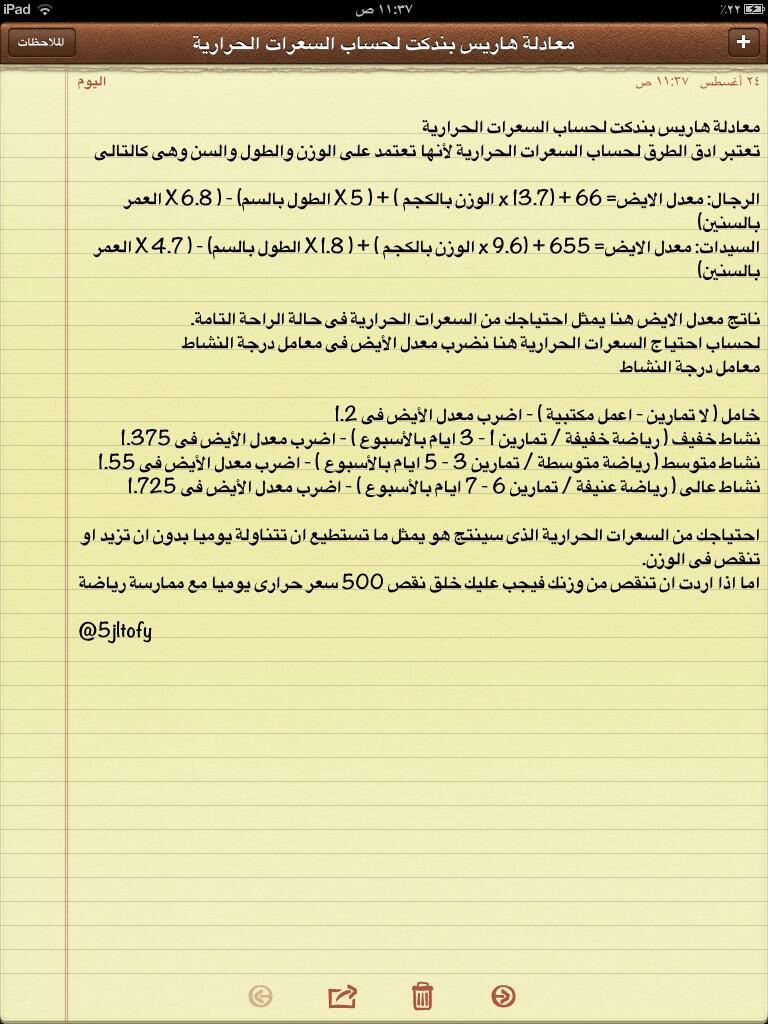 iPad ١١:٣٧ ص ٪٢٢
الملاحظات معادلة هاريس بندكت لحساب السعرات الحرارية +
٢٤ أغسطس ١١:٣٧ ص اليوم
معادلة هاريس بندكت لحساب السعرات الحرارية
تعتبر ادق الطرق لحساب السعرات الحرارية لأنها تعتمد على الوزن والطول والسن وهى كالتالى
الرجال: معدل الايض= 66 + (13.7 x الوزن بالكجم ) + ( 5 X الطول بالسم) - ( 6.8 X العمر
بالسنين)
السيدات: معدل الايض= 655 + (9.6 x الوزن بالكجم ) + ( 1.8 X الطول بالسم) - ( 4.7 X العمر
بالسنين)
ناتج معدل الايض هنا يمثل احتياجك من السعرات الحرارية فى حالة الراحة التامة.
لحساب احتياج السعرات الحرارية هنا نضرب معدل الأيض فى معامل درجة النشاط
معامل درجة النشاط
خامل ( لا تمارين - اعمل مكتبية ) - اضرب معدل الأيض فى 1.2
نشاط خفيف ( رياضة خفيفة / تمارين 1 - 3 ايام بالأسبوع ) - اضرب معدل الأيض فى 1.375
نشاط متوسط ( رياضة متوسطة / تمارين 3 - 5 ايام بالأسبوع ) - اضرب معدل الأيض فى 1.55
نشاط عالى ( رياضة عنيفة / تمارين 6 - 7 ايام بالأسبوع ) - اضرب معدل الأيض فى 1.725
احتياجك من السعرات الحرارية الذى سينتج هو يمثل ما تستطيع ان تتناولة يوميا بدون ان تزيد او
تنقص فى الوزن.
اما اذا اردت ان تنقص من وزنك فيجب عليك خلق نقص 500 سعر حرارى يوميا مع ممارسة رياضة
@5jltofy